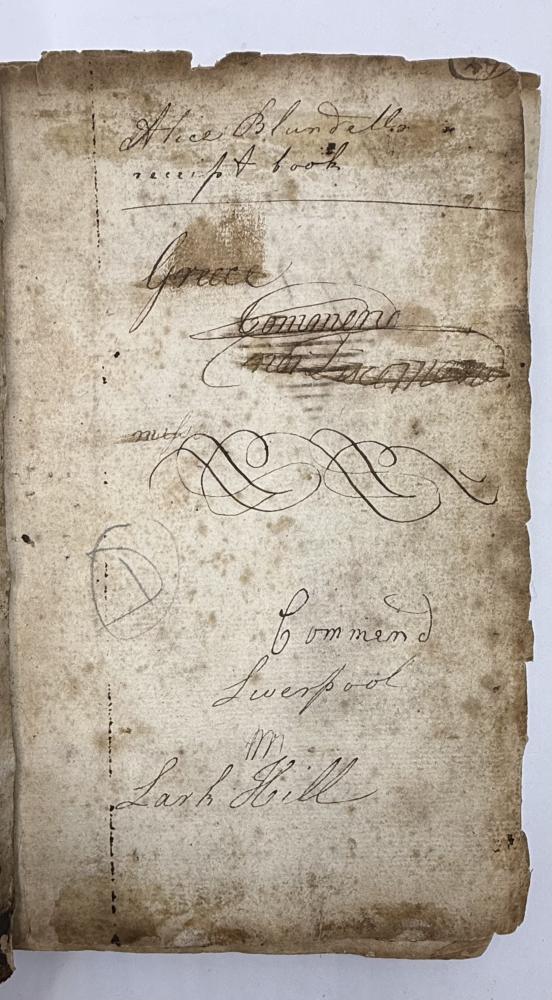 Alice Blundells
receipt book
Greece
Commend
and
Commend
Liverpool
m
Lark Hill